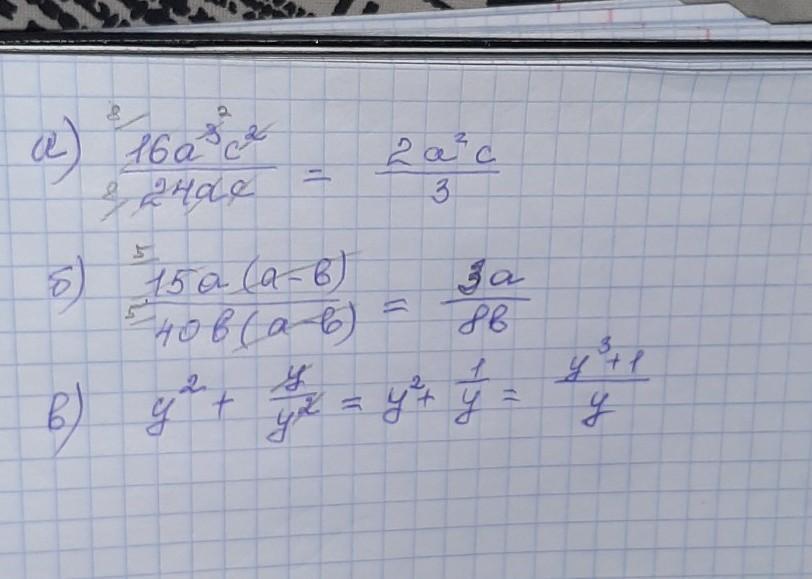 а) 8/ 16a³c² / 8/ 24ac = 2a²c / 3
б) 5 15a(a-b) / 5 40b(a-b) = 3a / 8b
в) y² + y/y² = y² + 1/y = y³+1 / y